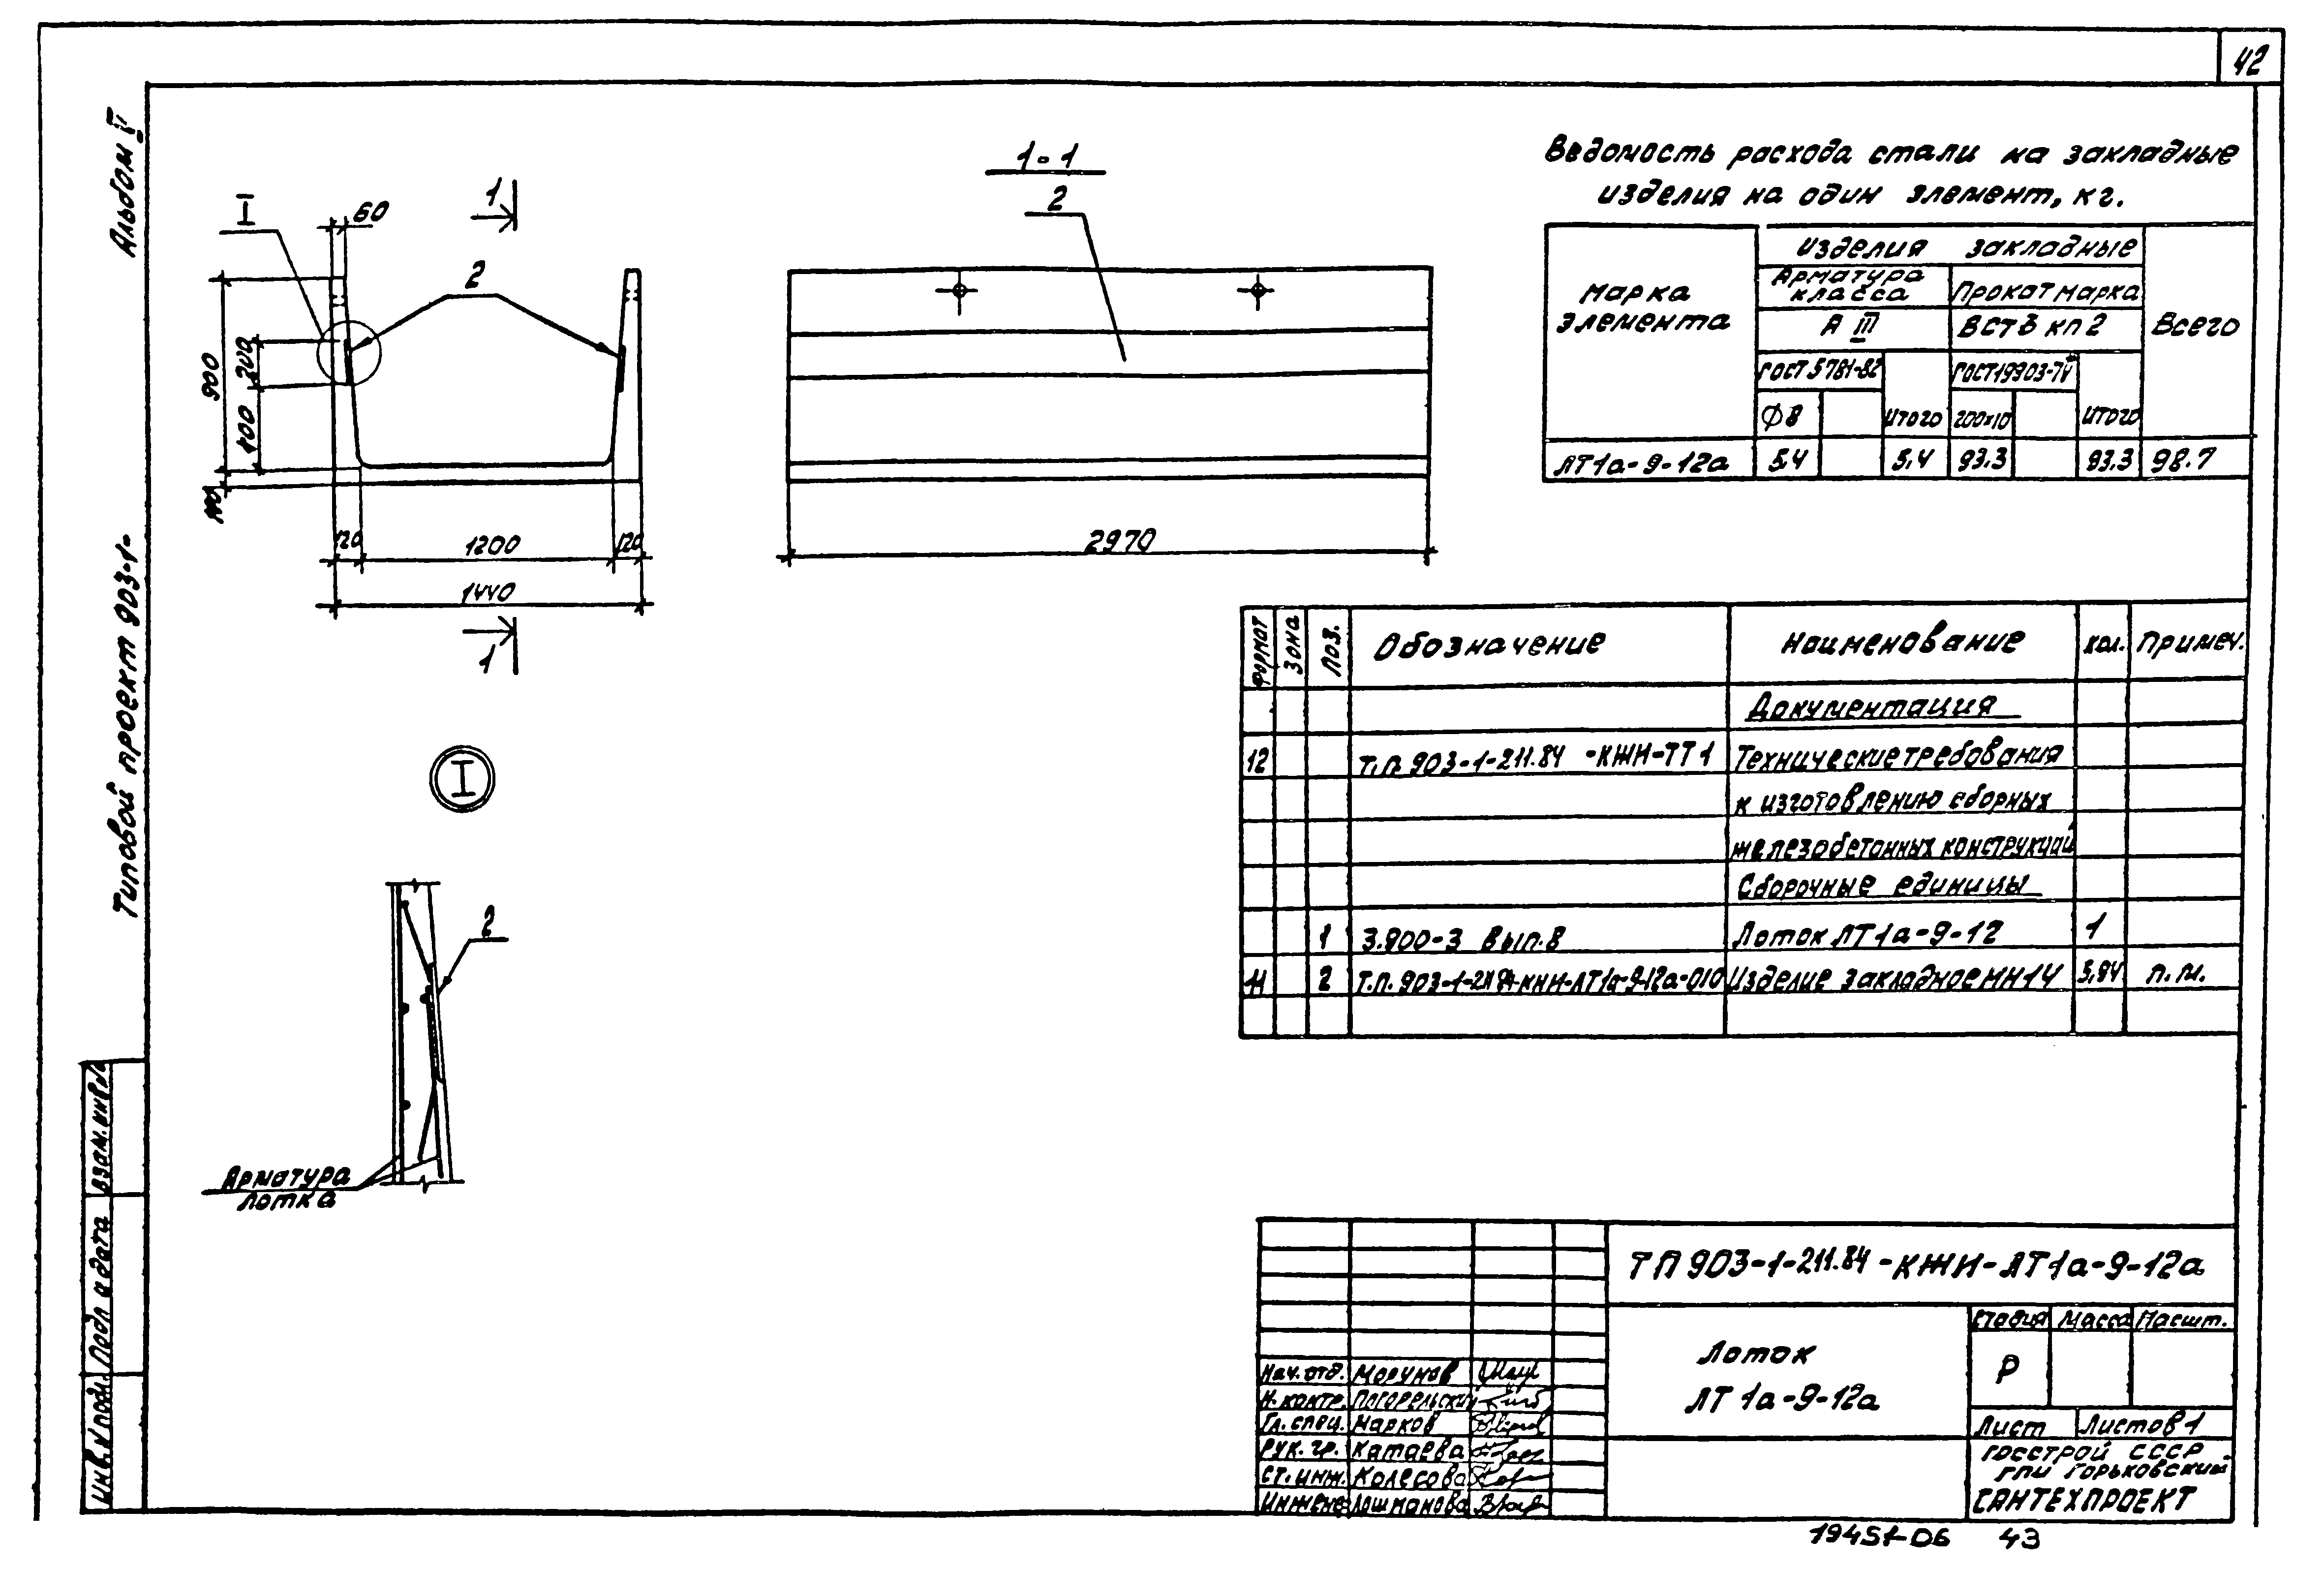 42
Альбом V
Типовой проект 903-1-
Взам. инв. №
Подп и дата
Инв. № подл.
I
60
1
2
900
200
400
100
120
1200
120
1440
1
1-1
2
2970
I
2
Арматура
лотка
Ведомость расхода стали на закладные
изделия на один элемент, кг.
Марка
элемента
Изделия закладные
Всего
Арматура
класса
Прокат марка
А III
ВСт3кп2
ГОСТ 5781-82
ГОСТ19903-74
Ф8
Итого
200×10
Итого
ЛТ1а-9-12а
5,4
5,4
93,3
93,3
98.7
Формат
Зона
Поз.
Обозначение
Наименование
Кол.
Примеч.
Документация
12
Т.П. 903-1-211.84 -КЖИ-ТТ1
Технические требования
к изготовлению сборных
железобетонных конструкций
Сборочные единицы
1
3.900-3 Вып.8
Лоток ЛТ1а-9-12
1
11
2
Т.П. 903-1-211.84-КЖИ-ЛТ1а-9-12а-010
Изделие закладное МН14
5,94
п.м.
ТП 903-1-211.84 -КЖИ-ЛТ1а-9-12а
Лоток
ЛТ 1а-9-12а
Стадия
Масса
Масшт.
Р
Лист
Листов 1
Госстрой СССР
ГПИ Горьковский
САНТЕХПРОЕКТ
Нач.отд.
Моргунов
Н.контр.
Погорельский
Гл.спец.
Марков
Рук.гр.
Катаева
Ст.инж.
Колесова
Инжене
Лошманова
19451-06 43